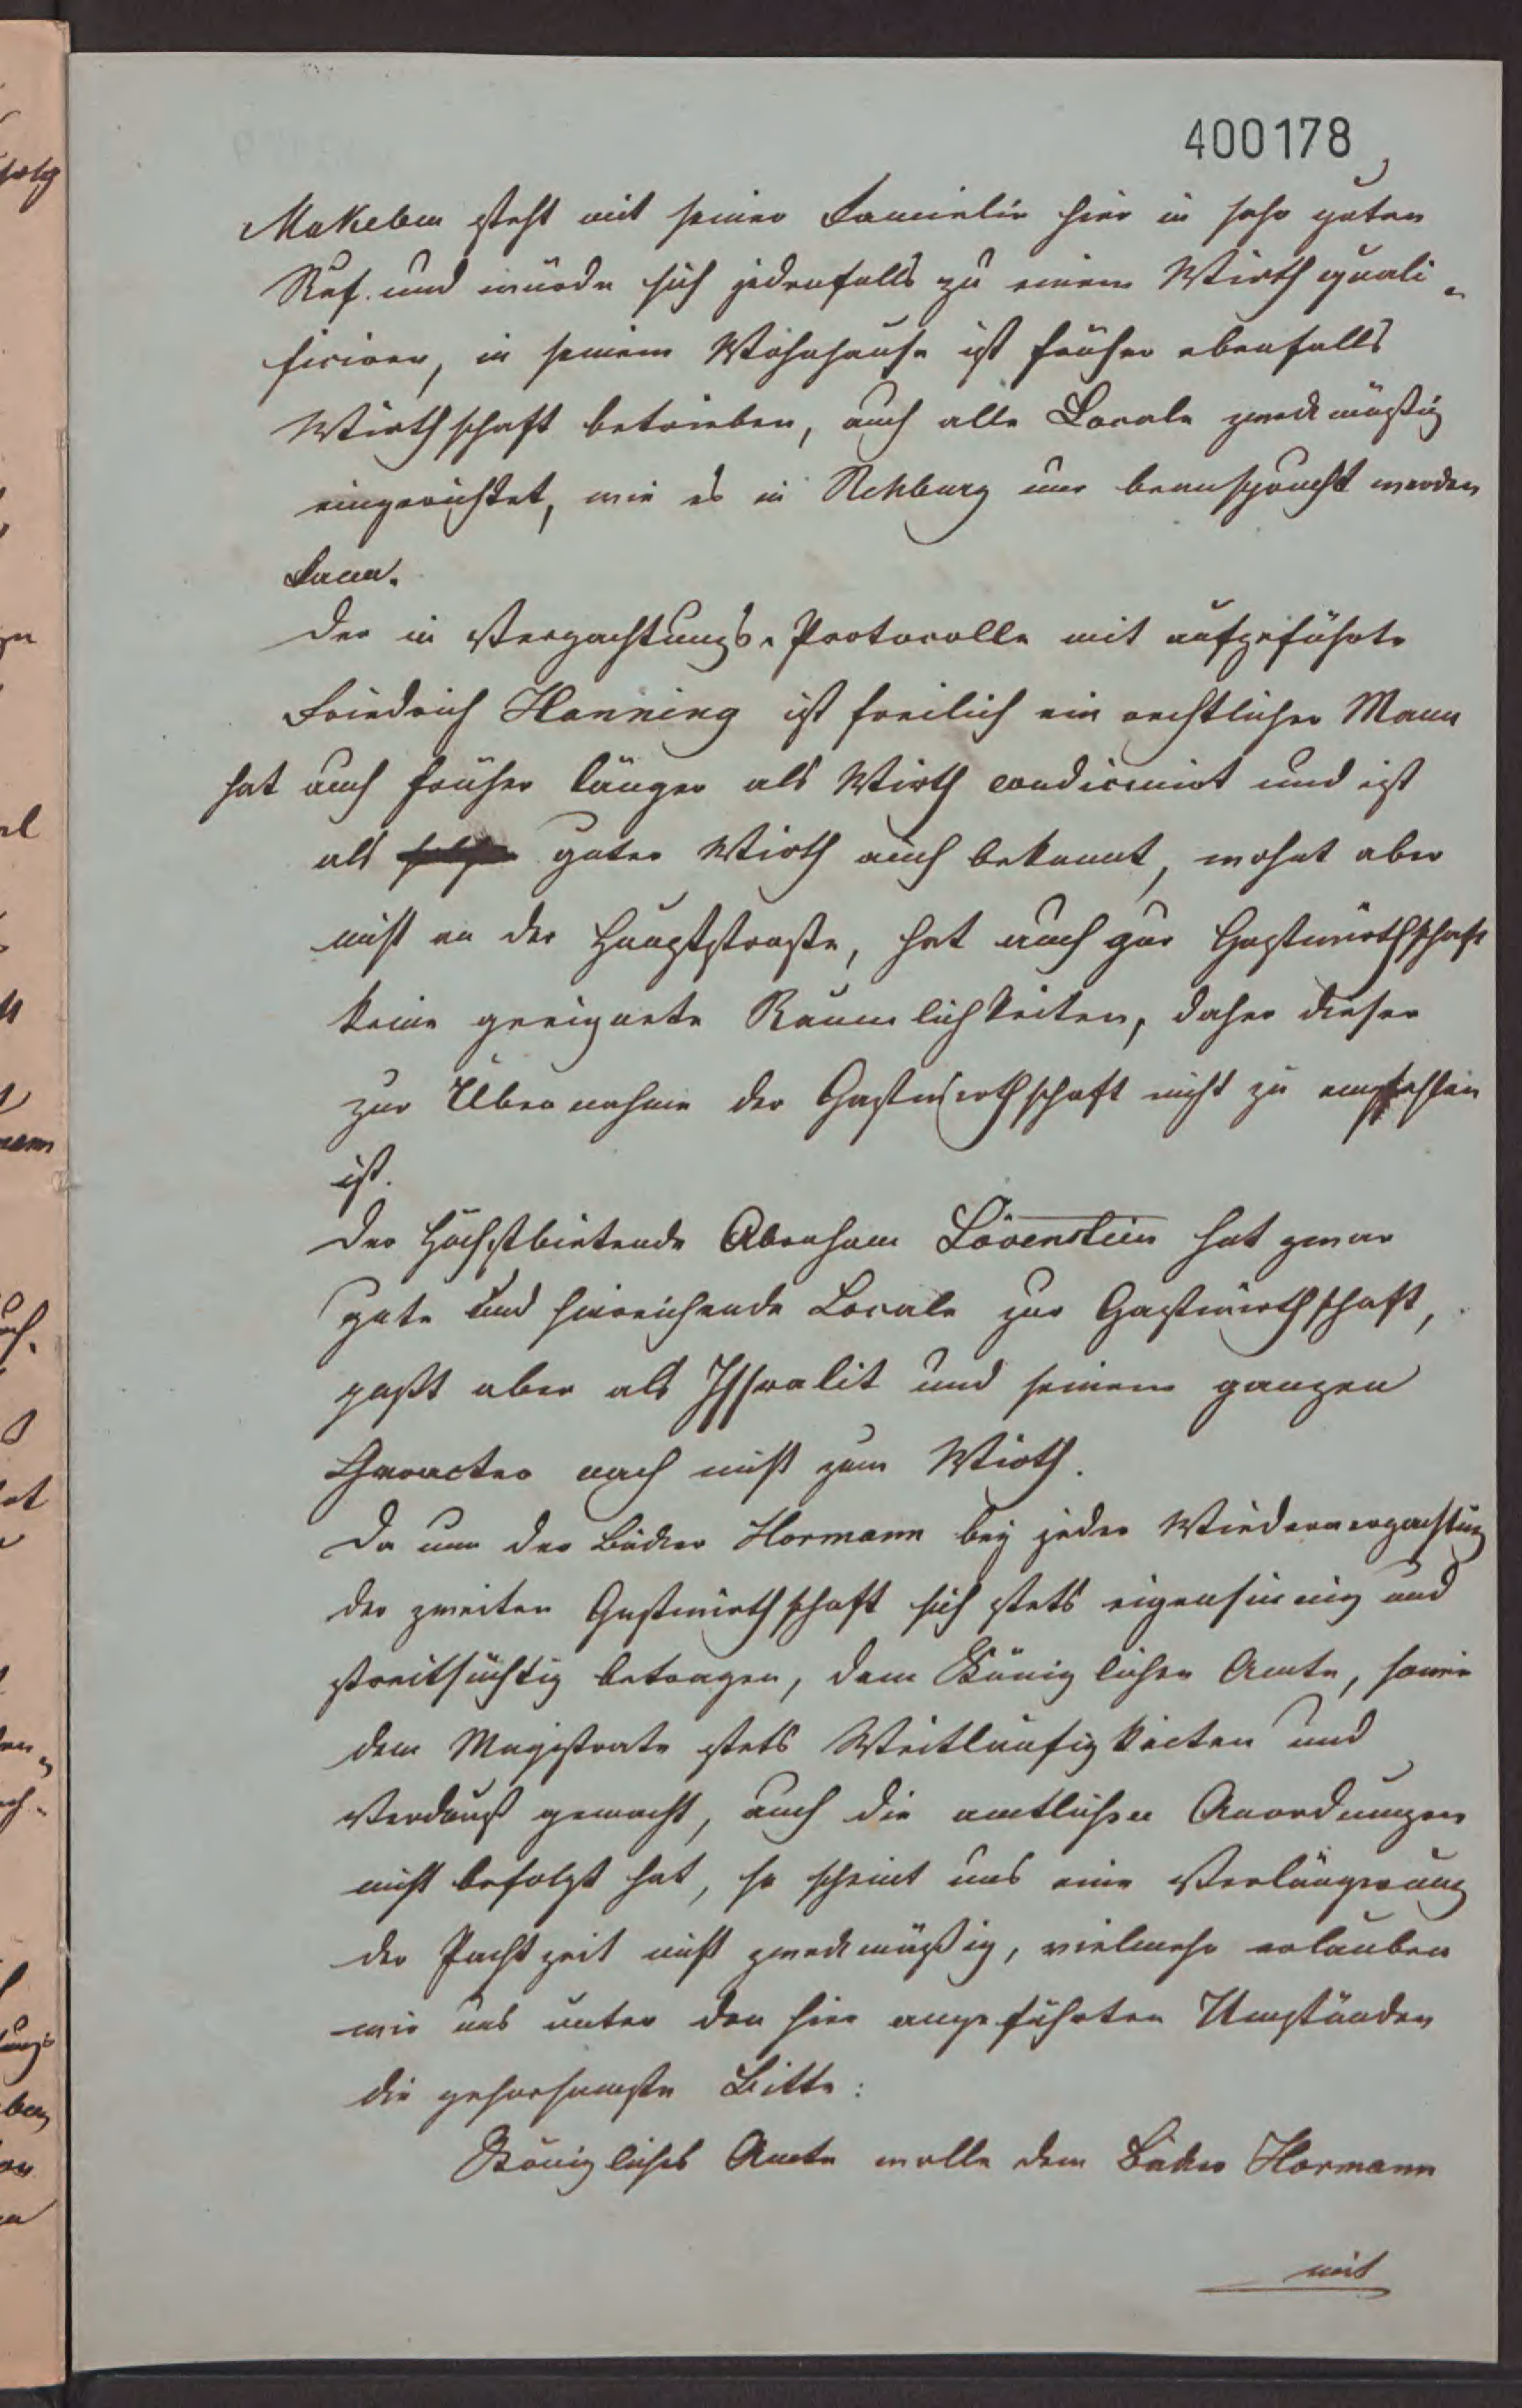 400178
Makeben steht mit seiner Familie hier in sehr guten
Ruf. und würde sich jedenfalls zu einem Wirth quali-
ficiren, in seinem Wohnhause ist früher ebenfalls
Wirthschaft betrieben, auch alle Locale zweckmäßig
eingerichtet, wie es in Rehburg nur beansprucht werden
kann.
Der in Verpachtungs-Protocolle mit aufgeführte
Friedrich Hanning ist freilich ein rechtlicher Mann
hat auch früher länger als Wirth condicinirt und ist
als guter Wirth auch bekannt, wohnt aber
nicht an der Hauptstraße, hat auch zur Gastwirthschaft
keine geeignete Räumlichkeiten, daher dieser
zur Übernahme der Gastwirthschaft nicht zu empfehlen
ist.
Der Höchstbietende Abraham Lövenstein hat zwar
gute und hinreichende Locale zur Gastwirthschaft,
paßt aber als Israelit und seinem ganzen
Character nach nicht zum Wirth.
Da nun der Bäcker Hormann bey jeder Wiederverpachtung
der zweiten Gastwirthschaft sich stets eigensinnig und
streitsüchtig betragen, dem Königlichen Amte, sowie
dem Magistrate stets Weitläufigkeiten und
Verdruß gemacht, auch die amtlichen Anordnungen
nicht befolgt hat, so scheint uns eine Verlängerung
der Pachtzeit nicht zweckmäßig, vielmehr erlauben
wir uns unter den hier angeführten Umständen
die gehorsamste Bitte:
Königliches Amte wolle dem Bäcker Hormann
mit